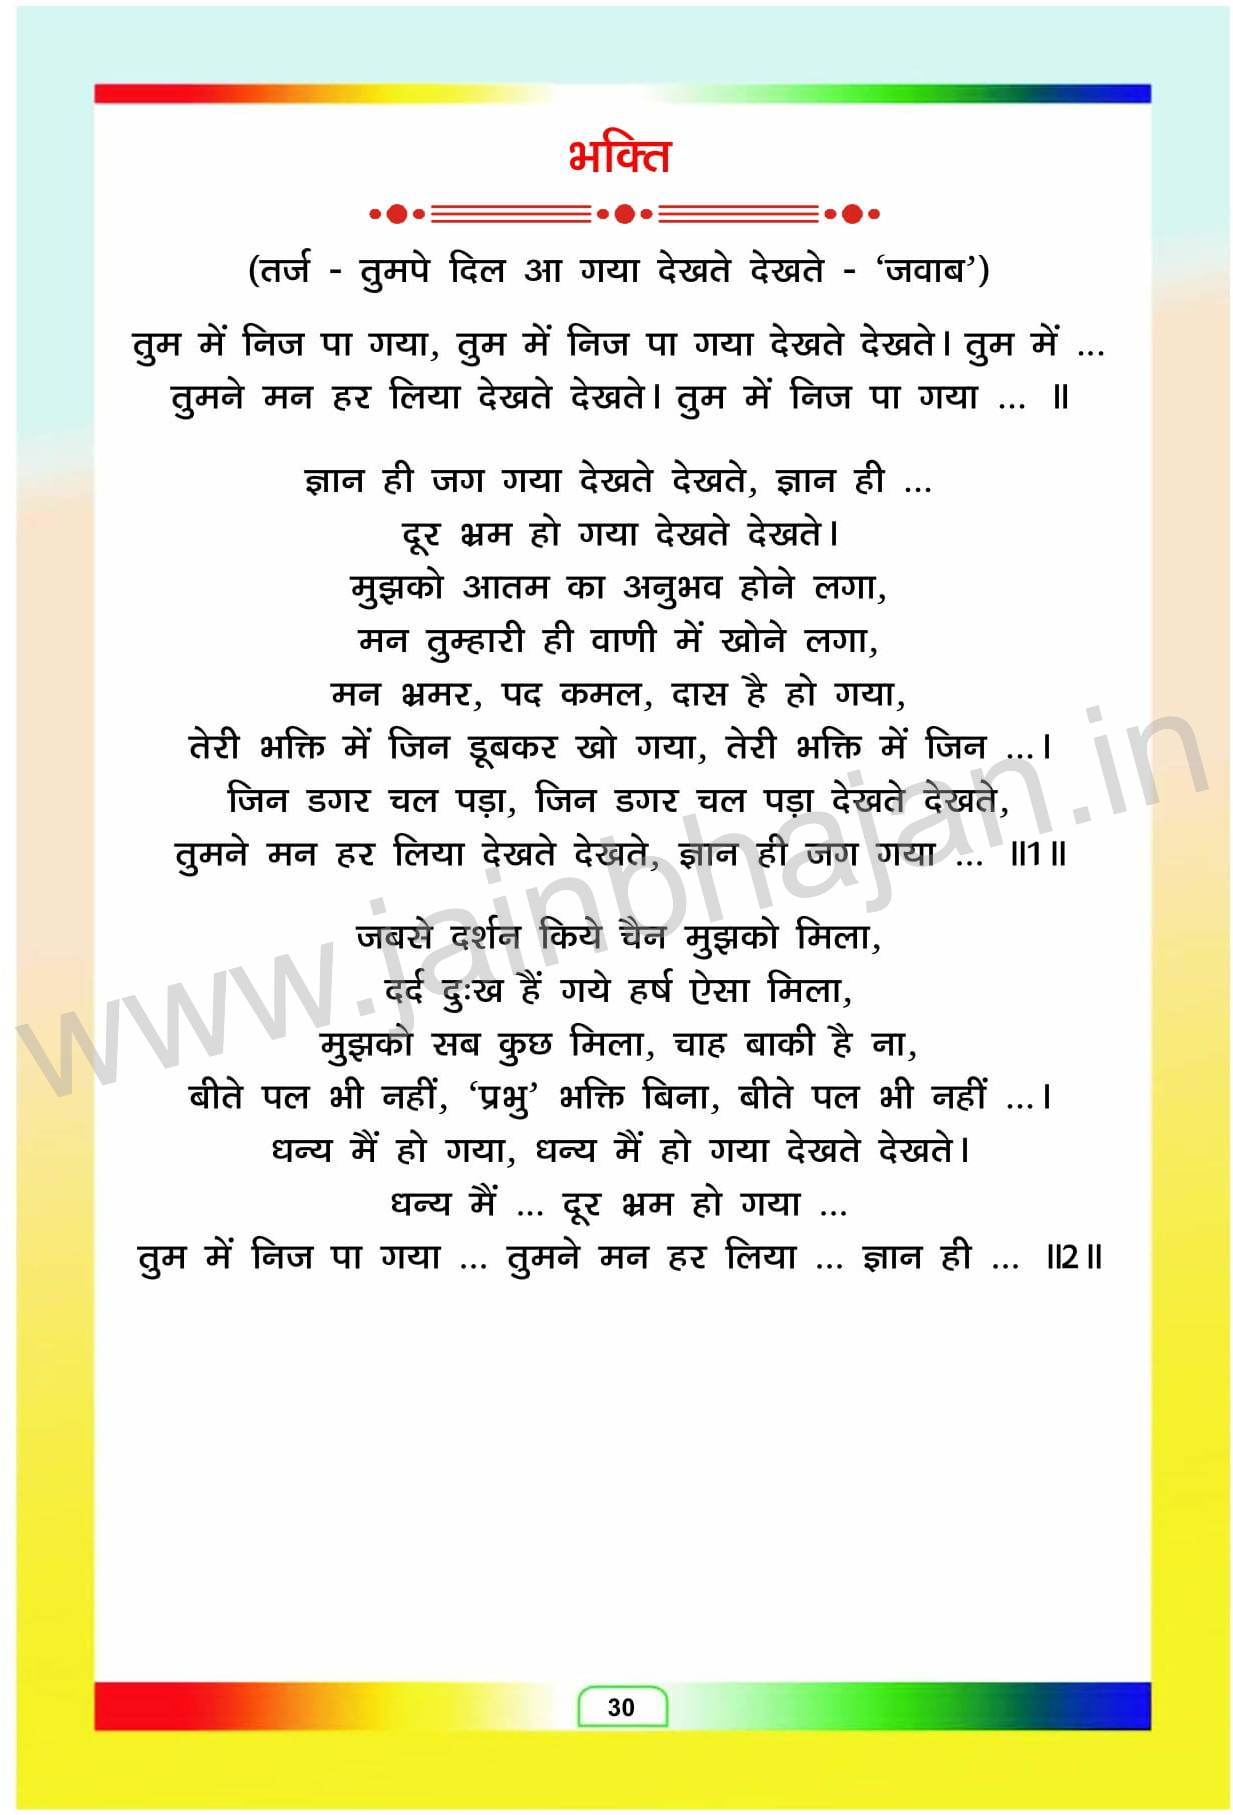 भक्ति
(तर्ज - तुमपे दिल आ गया देखते देखते - ‘जवाब’)
तुम में निज पा गया, तुम में निज पा गया देखते देखते। तुम में ...
तुमने मन हर लिया देखते देखते। तुम में निज पा गया ... ॥
ज्ञान ही जग गया देखते देखते, ज्ञान ही ...
दूर भ्रम हो गया देखते देखते।
मुझको आतम का अनुभव होने लगा,
मन तुम्हारी ही वाणी में खोने लगा,
मन भ्रमर, पद कमल, दास है हो गया,
तेरी भक्ति में जिन डूबकर खो गया, तेरी भक्ति में जिन ...।
जिन डगर चल पड़ा, जिन डगर चल पड़ा देखते देखते,
तुमने मन हर लिया देखते देखते, ज्ञान ही जग गया ... ॥1॥
जबसे दर्शन किये चैन मुझको मिला,
दर्द दुःख हैं गये हर्ष ऐसा मिला,
मुझको सब कुछ मिला, चाह बाकी है ना,
बीते पल भी नहीं, ‘प्रभु’ भक्ति बिना, बीते पल भी नहीं ...।
धन्य मैं हो गया, धन्य मैं हो गया देखते देखते।
धन्य मैं ... दूर भ्रम हो गया ...
तुम में निज पा गया ... तुमने मन हर लिया ... ज्ञान ही ... ॥2॥
www.jainbhajan.in
30